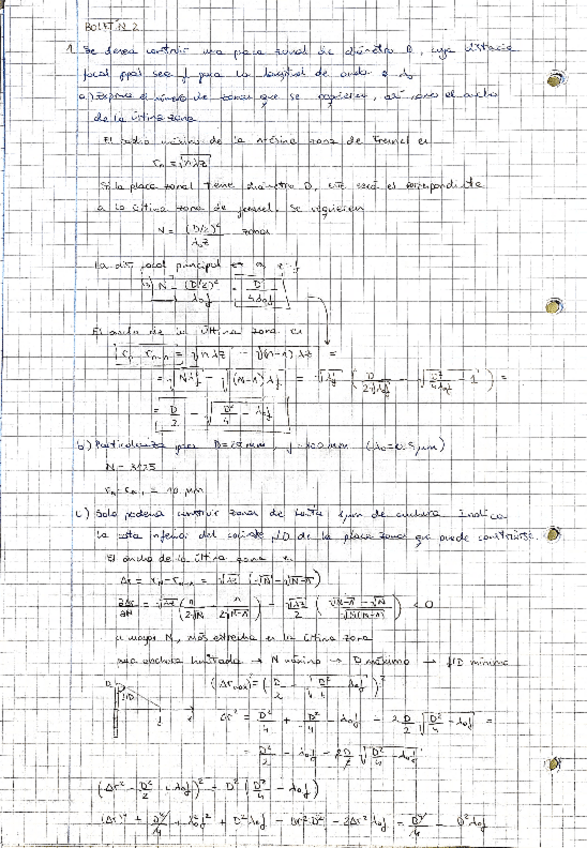 BOLETÍN 2
1. Se desea construir una placa zonal de diámetro D, cuya distancia
focal ppal sea f para la longitud de onda λ0
a) Exprese el número de zonas que se requieren, así como el ancho
de la última zona
El radio máximo de la n-ésima zona de Fresnel es
rn = √nλz
Si la placa zonal tiene diámetro D, este será el correspondiente
a la última zona de Fresnel. Se requieren
N = (D/2)² / λz zonas
La dist focal principal
N = (D/2)² / λ0f = D / 4λ0f
El ancho de la última zona es
rn - rn-1 = √nλz - √(n-1)λz =
= √Nλf - √(N-1)λf = √λf ( D / 2√λ0f - √ D² / 4λ0f - 1 ) =
= D/2 - √ D²/4 - λ0f
b) Particularice para mm, mm (λ0=0.5μm)
N = 3125
rn - rn-1 = 10 μm
c) Solo podemos construir zonas de hasta μm de anchura. Indica
la cota inferior del cociente f/D de la placa zonal que puede construirse.
El ancho de la última zona es
Δr = rN - rN-1 = √λz (√N - √N-1)
∂Δr/∂N = √λz ( 1/2√N - 1/2√N-1 ) = √λz/2 ( √N-1 - √N / √N(N-1) ) < 0
a mayor N, más estrecha es la última zona
anchura limitada → N máximo → D máximo → f/D mínima
(Δrmax)² = ( D/2 - √ D²/4 - λ0f )²
Δr² = D²/4 + D²/4 - λ0f - 2 D/2 √ D²/4 - λ0f =
= D²/2 - λ0f - 2D/2 √ D²/4 - λ0f
(Δr² - D²/2 + λ0f)² = D² ( D²/4 - λ0f )
(Δr)⁴ + D⁴/4 + λ0²f² + D²λ0f - Δr²D² - 2Δr²λ0f = D⁴/4 - D²λ0f